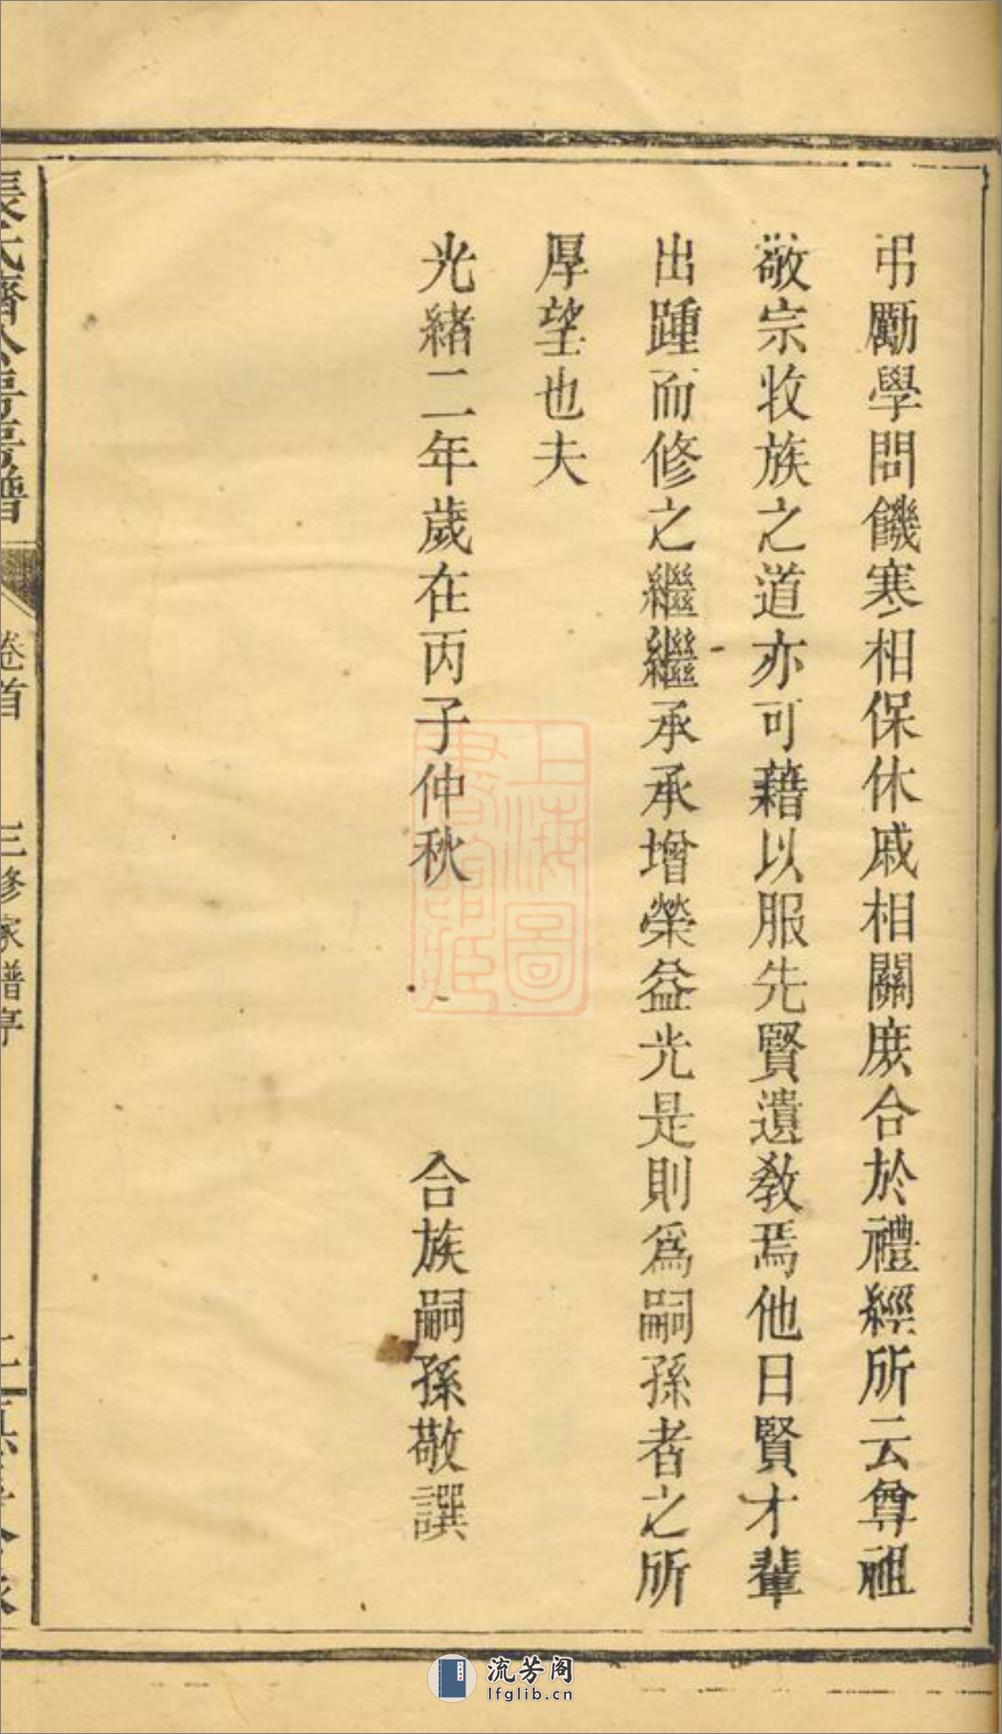 弔勵學問饑寒相保休戚相關庶合於禮經所云尊祖
敬宗收族之道亦可藉以服先賢遺教焉他日賢才輩
出踵而修之繼繼承承增榮益光是則爲嗣孫者之所
厚望也夫
光緒二年歲在丙子仲秋
合族嗣孫敬譔
卷首
三修家譜序
上海圖
書館藏
流芳阁
lfglib.cn